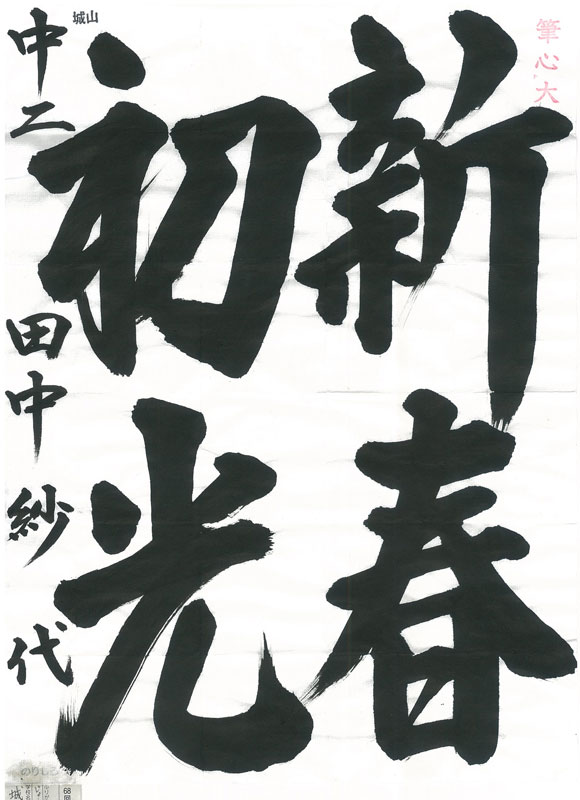 筆心大
新春
初光
山城
中二 田中紗代
のりしろ
68回
城